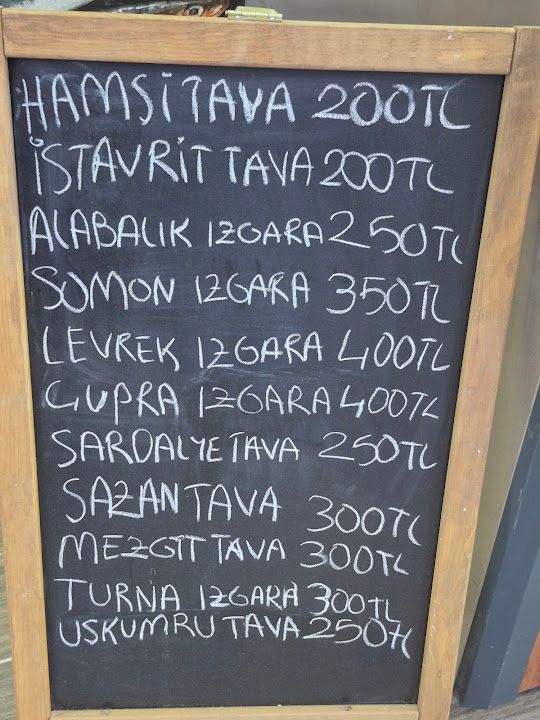 HAMSİ TAVA 200TL
İSTAVRİT TAVA 200TL
ALABALIK IZGARA 250TL
SOMON IZGARA 350TL
LEVREK IZGARA 400TL
ÇUPRA IZGARA 400TL
SARDALYE TAVA 250TL
SAZAN TAVA 300TL
MEZGİT TAVA 300TL
TURNA IZGARA 300TL
USKUMRU TAVA 250TL